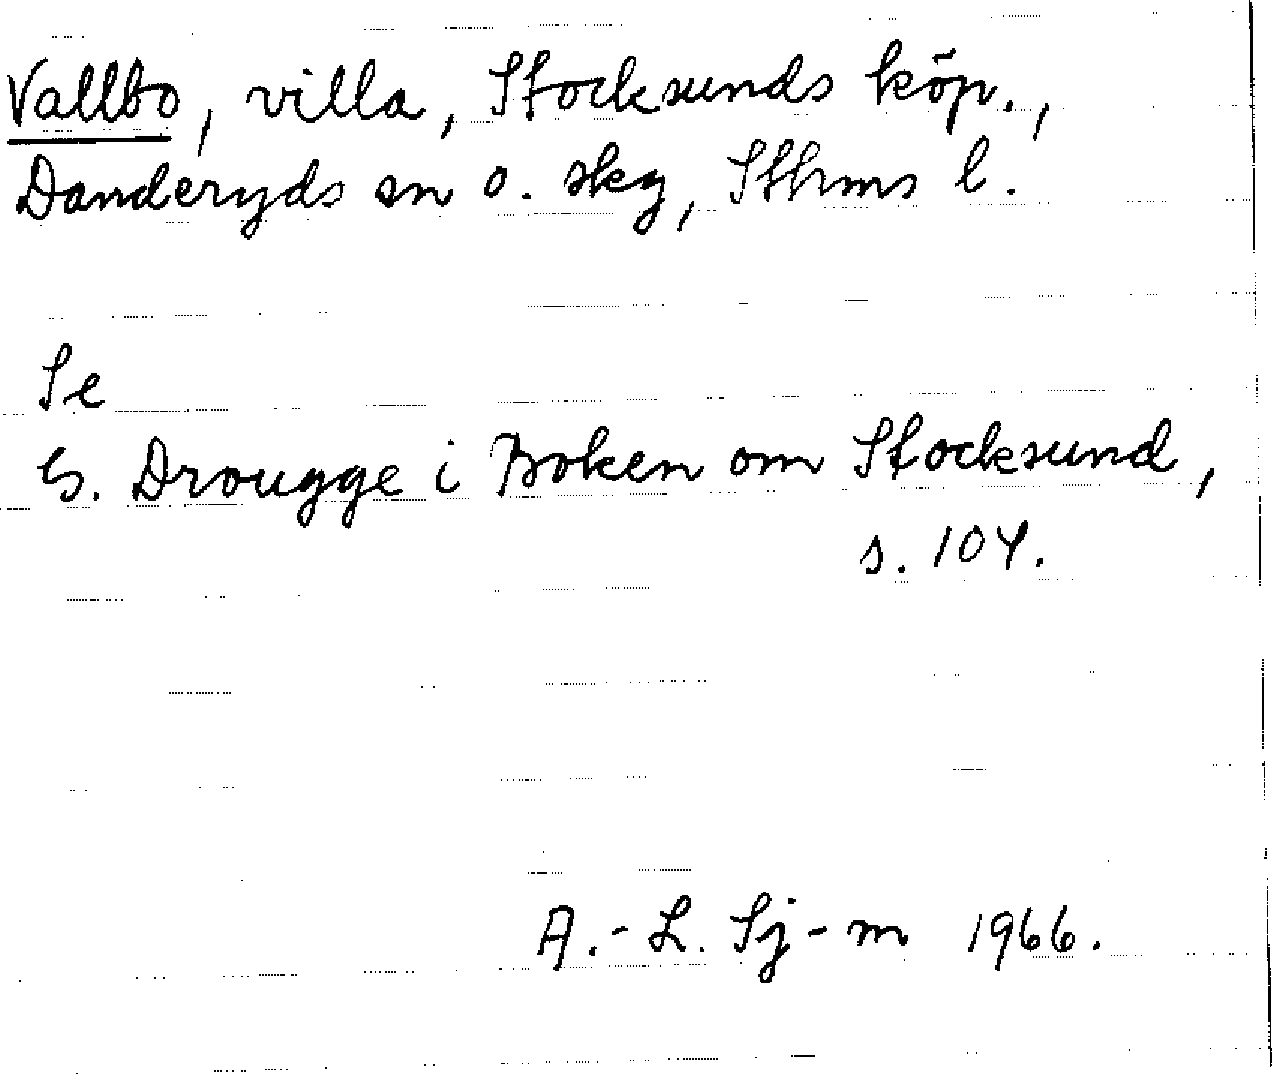 Vallbo, villa, Stocksunds köp.,
Danderyds sn o. skg, Sthms l.
Se
G. Drougge i Boken om Stocksund,
s. 104.
A.-L. Sj-m 1966.